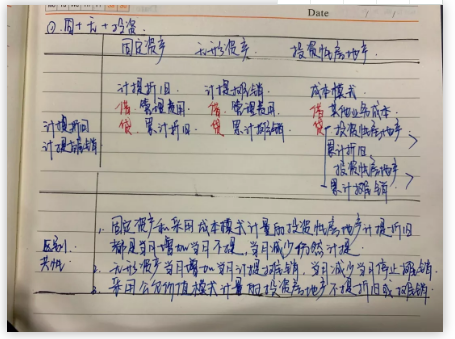 Date
①. 固+无+投资.
固定资产 无形资产. 投资性房地产
计提折旧 计提摊销. 成本模式.
借 管理费用 借 管理费用 借 其他业务成本.
计提折旧 贷 累计折旧. 贷 累计摊销 贷 投资性房地产
计提摊销 累计折旧、
投资性房地产
累计摊销.
1. 固定资产和采用成本模式计量的投资性房地产计提折旧
区别. 都是当月增加当月不提,当月减少仍然计提.
共性 2. 无形资产当月增加当月计提摊销、当月减少当月停止摊销.
3. 采用公允价值模式计量的投资房地产不提折旧或摊销.